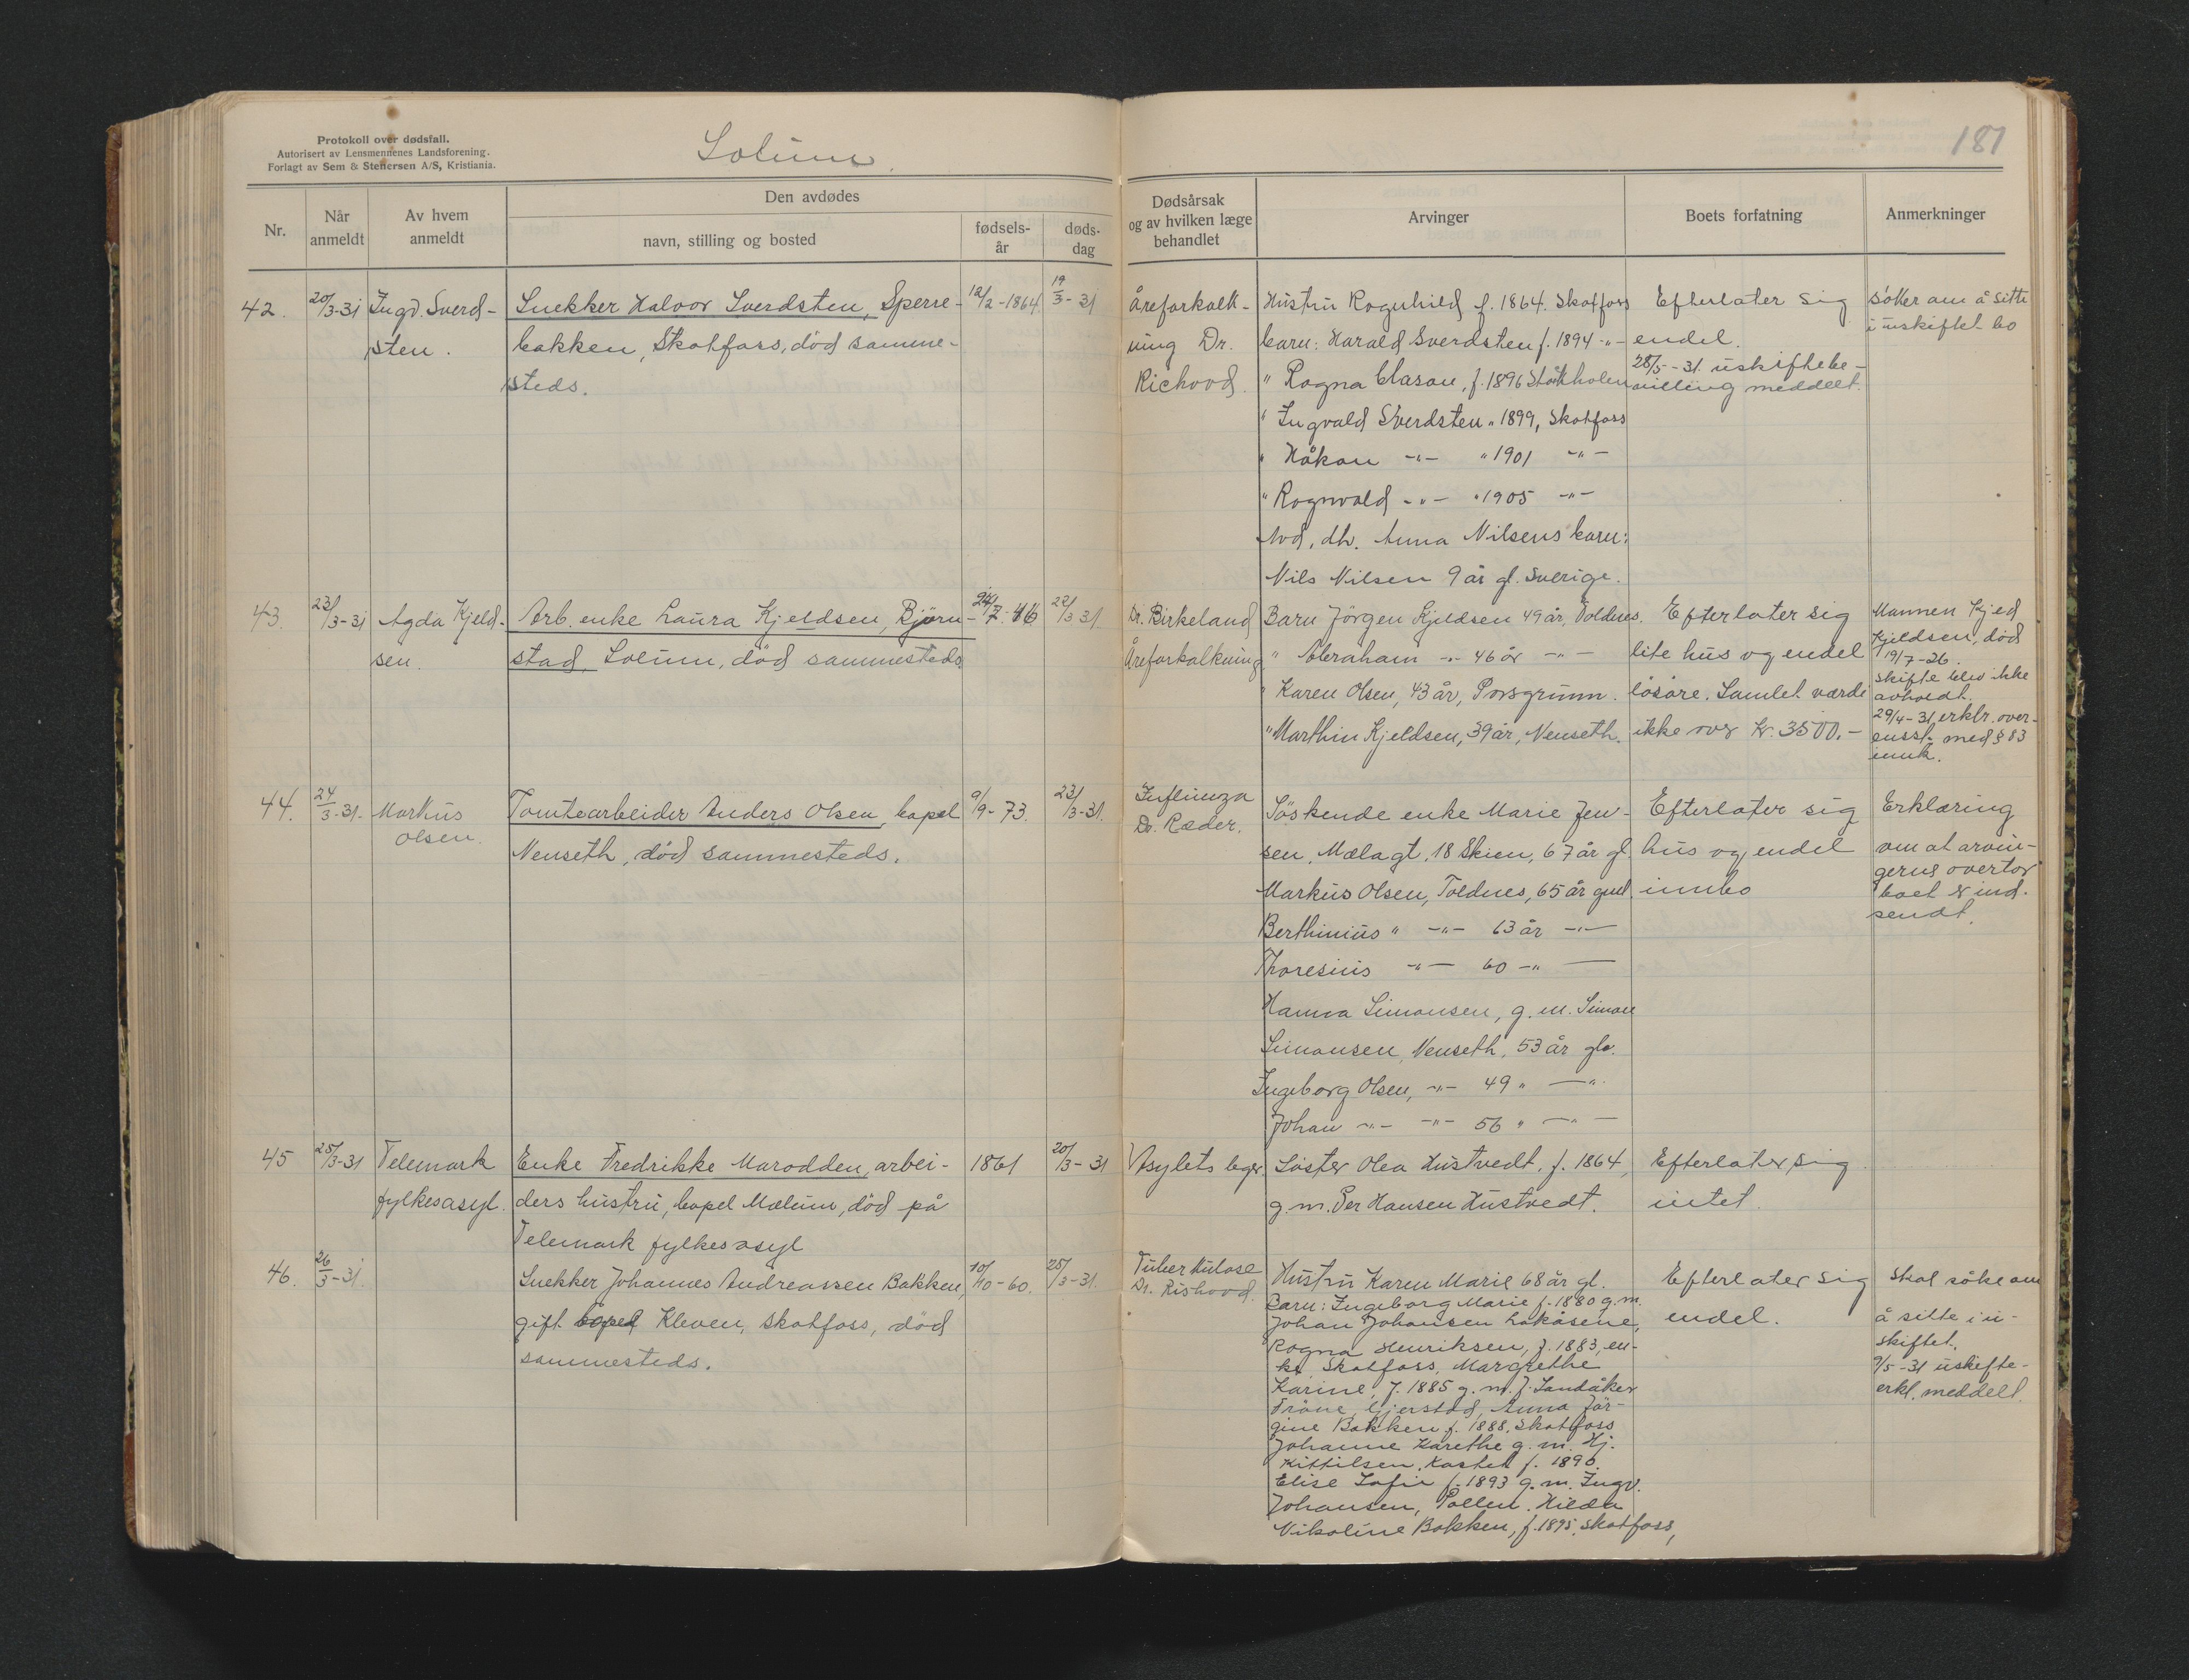 Protokoll over dødsfall.
Autorisert av Lensmennenes Landsforening.
Forlagt av Sem & Stenersen A/S, Kristiania.
Solum
181
Nr.
Når anmeldt
Av hvem anmeldt
Den avdødes
navn, stilling og bosted
fødsels-år
døds-dag
Dødsårsak og av hvilken læge behandlet
Arvinger
Boets forfatning
Anmerkninger
42. 20/3-31 Ingv. Sverd- Snekker Halvor Sverdsten, Sperre- 12/2-1864. 19/3-31
sten. bakken, Skotfoss, død samme-
steds.
Åreforkalk-
ning Dr.
Richvod.
Hustru Ragnhild f. 1864. Skotfoss
barn: Harald Sverdsten f. 1894 -"-
" Ragna Clason, f. 1896 Stockholm
" Ingvald Sverdsten " 1899, Skotfoss
" Håkon -"- " 1901 -"-
" Ragnvald -"- " 1905 -"-
Avd. dtr. Anna Nilsens barn:
Nils Nilsen 9 år gl. Sverige.
Efterlater sig
endel.
28/5-31 uskiftebe-
villing meddelt.
Søker om å sitte
i uskiftet bo
43. 23/3-31 Agda Kjeld- Arb. enke Laura Kjeldsen, Bjørn- 46 22/3 31
sen. stad, Solum, død sammesteds
Dr. Birkeland
Åreforkalkning
Barn Jörgen Kjeldsen 49 år, Voldnes.
" Abraham -"- 46 år -"-
" Karen Olsen, 43 år, Porsgrunn.
" Marthin Kjeldsen, 39 år, Nenseth.
Efterlater sig
lite hus og endel
løsøre. Samlet verdi
ikke over kr. 3500.-
Mannen Kjed
Kjeldsen, død
19/7-26.
Skifte blev ikke
avholdt.
29/4-31 erklr. over-
ensst. med § 83
innk.
44. 24/3-31. Markus Tomtearbeider Anders Olsen, kapel 9/9-73. 23/3-31.
Olsen. Nenseth, død sammesteds.
Influenza
Dr. Ræder.
Søskende enke Marie Jen-
sen, Mælagt. 18 Skien, 67 år gl.
Markus Olsen, Toldnes, 65 år gml.
Berthinius " -"- 63 år -"-
Thoresius -"- 60 -"-
Hanna Simonsen, g. m. Simon
Simonsen, Nenseth, 53 år gl.
Ingeborg Olsen, -"- 49 " -"-
Johan -"- -"- 56 " -"-
Efterlater sig
hus og endel
innbo
Erklæring
om at arvin-
gerne overtar
boet er ind-
sendt.
45 25/3-31 Telemark Enke Fredrikke Marodden, arbei- 1861 20/3-31
fylkesasyl. ders hustru, kapel Mælum, død på
Telemark fylkesasyl
Asylets leger
Søster Olea Hustvedt, f. 1864,
g. m. Per Hansen Hustvedt.
Efterlater sig
intet.
46. 26/3-31. Snekker Johannes Andreassen Bakken, 10/10-60. 25/3-31.
gift Kleven, Skotfoss, død
sammesteds.
Tuberkulose
Dr. Rishovd.
Hustru Karen Marie 68 år gl.
Barn: Ingeborg Marie f. 1880 g. m.
Johan Johansen Lokåsene,
Ragna Henriksen, f. 1883, en-
ke, Skotfoss, Margrethe
Karine, f. 1885 g. m. J. Sandåker
Gjerstad, Anna Jör-
gine Bakken f. 1888, Skotfoss
Johanne Karethe g. m. Hj.
Kittilsen, f. 1890.
Elise Sofie f. 1893 g. m. Ingv.
Johansen, Pollen. Hilda
Nikoline Bakken, f. 1895, Skotfoss,
Efterlater sig
endel.
Skal søke om
å sitte i u-
skiftet.
9/5-31 uskifte-
erkl. meddelt.